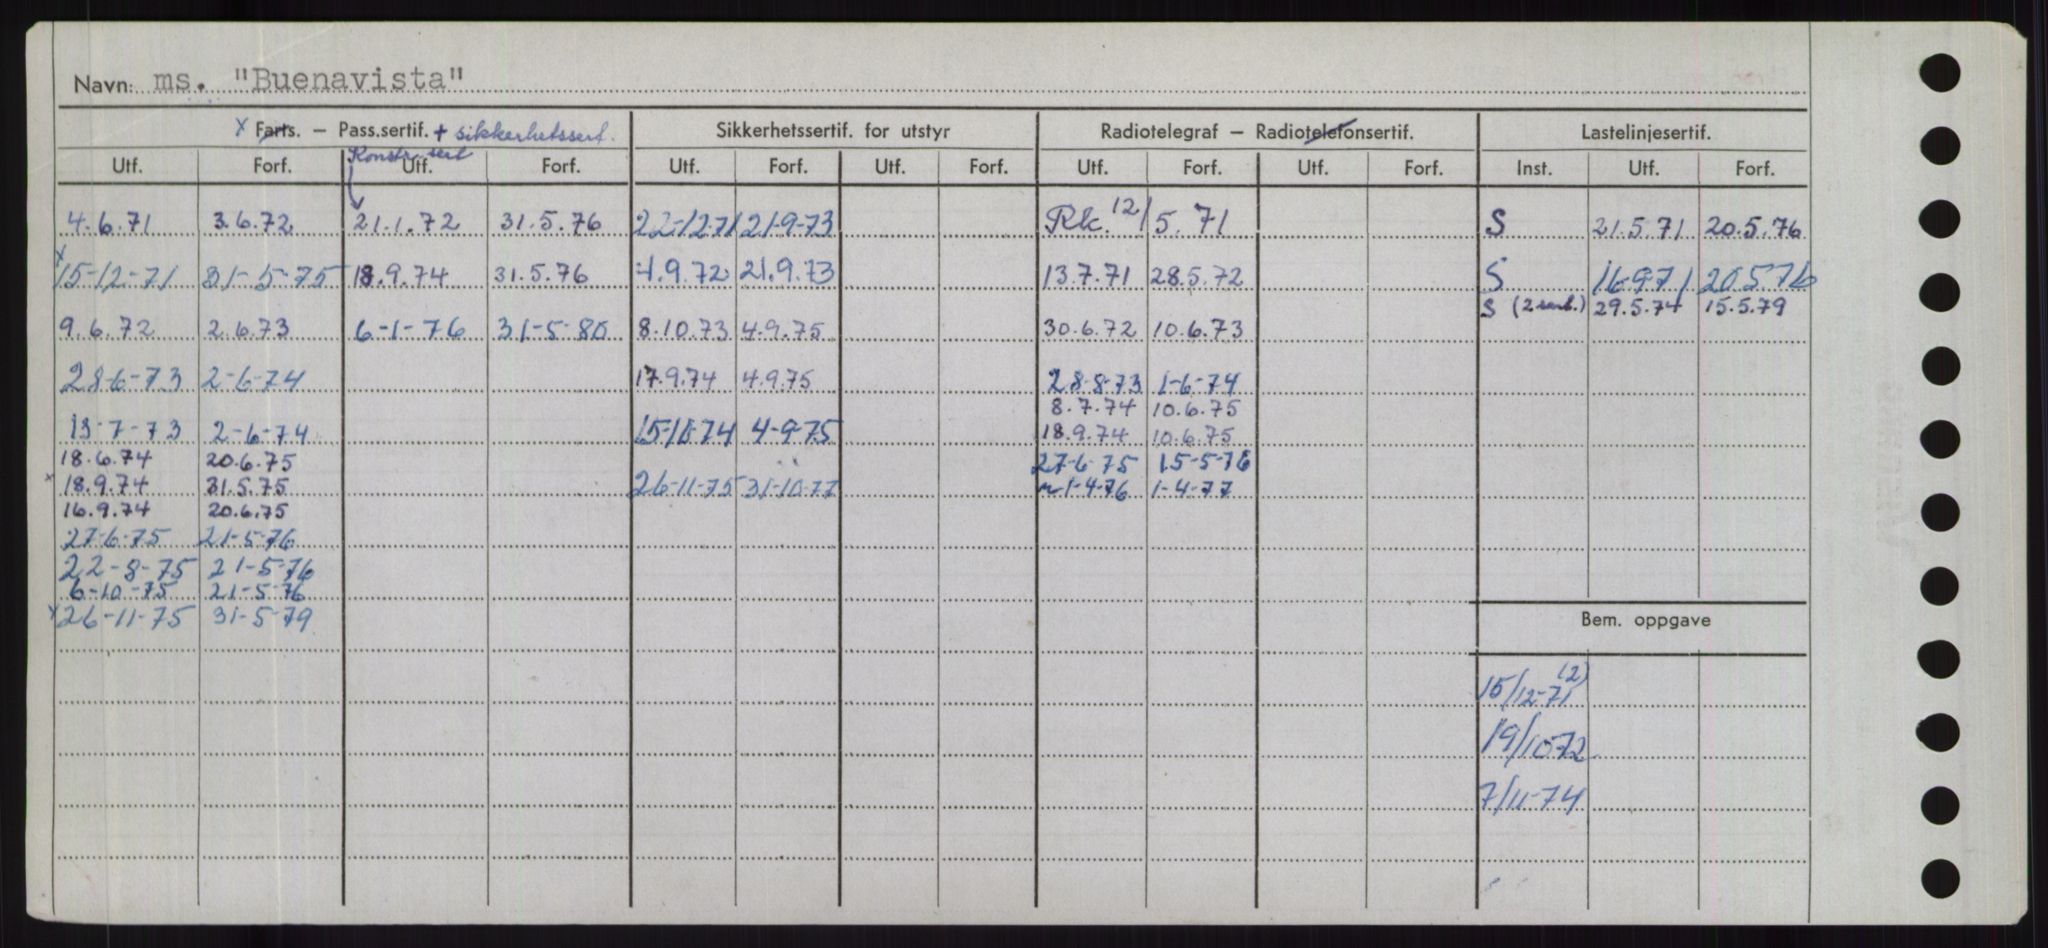 Navn: ms. "Buenavista"
x Farts. – Pass.sertif. + sikkerhetssert. Sikkerhetssertif. for utstyr Radiotelegraf – Radiotelefonsertif. Lastelinjesertif.
Konstr. sert
Utf. Forf. Utf. Forf. Utf. Forf. Utf. Forf. Utf. Forf. Utf. Forf. Inst. Utf. Forf.
4.6.71 3.6.72 21.1.72 31.5.76 22-12-71 21-9-73 Rk. 12/5.71 S 21.5.71 20.5.76
x 15-12-71 31-5-75 18.9.74 31.5.76 4.9.72 21.9.73 13.7.71 28.5.72 S 16-9-71 20.5.76
S (2 sert.) 29.5.74 15.5.79
9.6.72 2.6.73 6-1-76 31-5-80 8.10.73 4.9.75 30.6.72 10.6.73
28-6-73 2-6-74 17.9.74 4.9.75 28-8-73 1-6-74
8.7.74 10.6.75
13-7-73 2-6-74 15-10-74 4-9-75 18.9.74 10.6.75
18.6.74 20.6.75 27-6-75 15-5-76
x 18.9.74 31.5.75 26-11-75 31-10-77 1-4-76 1-4-77
16.9.74 20.6.75
27-6-75 21-5-76
22-8-75 21-5-76
6-10-75 21-5-76
x 26-11-75 31-5-79
Bem. oppgave
15/12-71 (2)
19/10-72
7/11-74